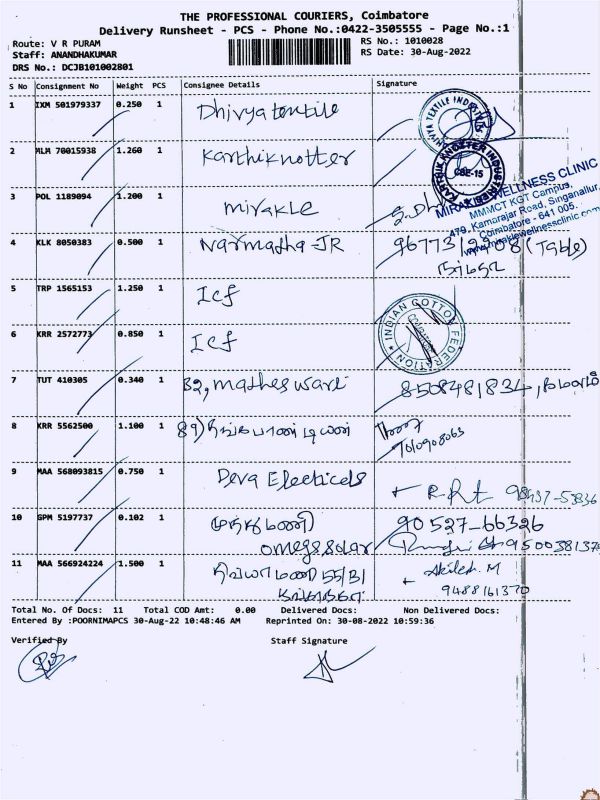 THE PROFESSIONAL COURIERS, Coimbatore
Delivery Runsheet - PCS - Phone No.:0422-3505555 - Page No.:1
Route: V R PURAM
Staff: ANANDHAKUMAR
DRS No.: DCJB101002801
RS No.: 1010028
RS Date: 30-Aug-2022
S No Consignment No Weight PCS Consignee Details Signature
1 IXM 501979337 0.250 1 Dhivya textile
DHIVYA TEXTILE INDUSTRIES
2 MLM 70015938 1.260 1 Karthik notter
KARTHIK KNOTTER INDUSTRIES
CBE-15
3 POL 1189094 1.200 1 mirakle
MIRAKLE WELLNESS CLINIC
MMMCT KGT Campus,
479, Kamarajar Road, Singanallur,
Coimbatore - 641 005.
www.miraklewellnessclinic.com
4 KLK 8050383 0.500 1 Narmadha-JR (Table)
5 TRP 1565153 1.250 1 Icf
6 KRR 2572773 0.850 1 Icf
INDIAN COTTON FEDERATION
7 TUT 410305 0.340 1 32, matheswari 8508481834,
8 KRR 5562500 1.100 1 89) தங்கபாண்டியன்
7010908063
9 MAA 568093815 0.750 1 Deva Electicels 98437-53836
10 GPM 5197737 0.102 1 முத்துமணி 90527-66326
omega solar 9500381370
11 MAA 566924224 1.500 1 55/B1 Akilesh. M
9488161370
Total No. Of Docs: 11 Total COD Amt: 0.00 Delivered Docs: Non Delivered Docs:
Entered By :POORNIMAPCS 30-Aug-22 10:48:46 AM Reprinted On: 30-08-2022 10:59:36
Verified By Staff Signature